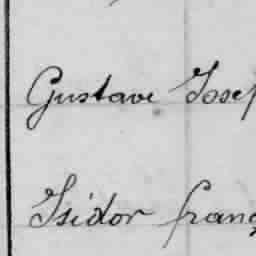 Gustave Josep
Isidor franç